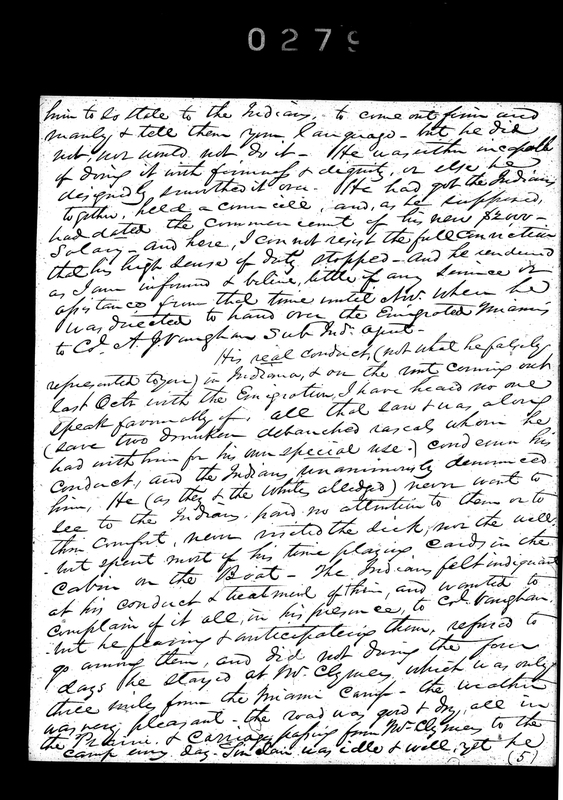 0279
him to so state to the Indians - to come out firm and
manly & tell them your language - but he did
not, nor would not do it - He was either incapable
of doing it with firmness & dignity, or else he
designedly smoothed it over. He had got the Indians
together, held a councell, and, as he supposed,
had dated the commencement of his new
Salary - and here, I can not resist the full conviction
that his high sense of duty stopped - and he rendered
as I am informed & believe, little if any service or
assistance from that time until Novr. when he
was directed to hand over the Emigrated Miamis
to Col. A. J. Vaughan Sub Ind. Agent.
His real conduct, (not what he falsely
represented to you) in Indiana, & on the rout coming out
last Octr. with the Emigration, I have heard no one
speak favorably of, all that saw & was along
(save two drunken debauched rascals whom he
had with him for his own special use.) condemn his
conduct, and the Indians unanimously denounced
him, He (as they & the whites alledged) never went to
see to the Indians, paid no attention to them or to
their comfort, never visited the sick, nor the well,
but spent most of his time playing cards in the
Cabin on the Boat - The Indians felt indignant
at his conduct & treatment of them, and wanted to
complain of it all, in his presence, to Col. Vaughan,
but he fearing & anticipating them, refused to
go among them, and did not during the four
days he stayed at McClymey, which was only
three miles from the Miami Camp - the weather
was very pleasant - the road was good & dry, all in
the Prairie, & Carriages passing from McClymey to the
camp every day. Sinclair was idle & well, yet he
(5)